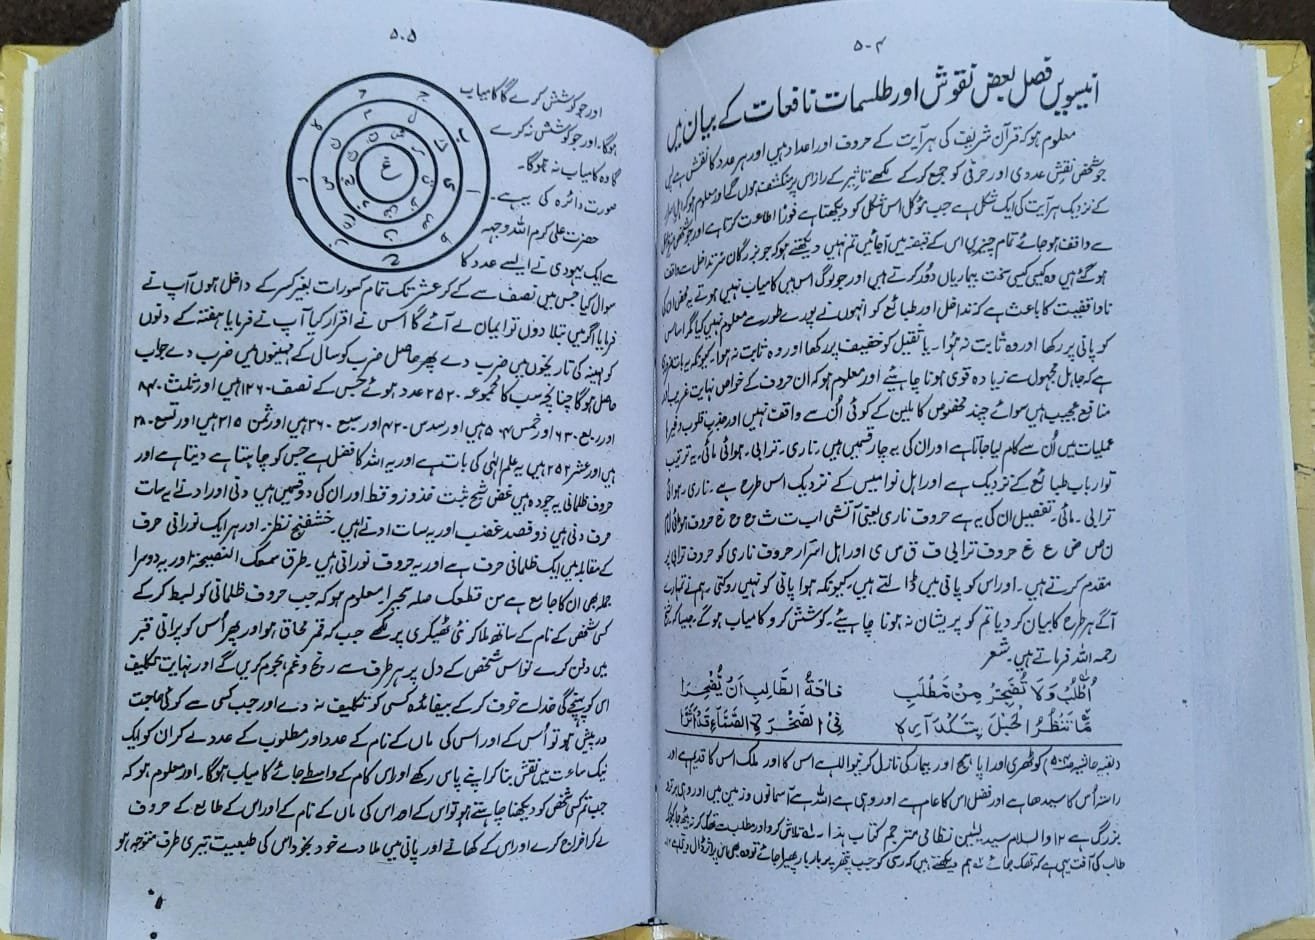 ۵۰۴
انیسویں فصل بعض نقوش اور طلسمات نافعات کے بیان میں
معلوم ہو کہ قرآن شریف کی ہر آیت کے حروف اور اعداد ہیں اور ہر عدد کا نقش ہے پس
جو شخص نقش عددی اور حرفی کو جمع کر کے لکھے تاثیر کے راز اس پر منکشف ہوں گے اور معلوم ہو کہ
کے نزدیک ہر آیت کی ایک شکل ہے جب مؤکل اس شکل کو دیکھتا ہے فوراً اطاعت کرتا ہے اور جو شخص
سے واقف ہو جائے تمام چیزیں اس کے قبضہ میں آجائیں تم نہیں دیکھتے ہو کہ جو بزرگان سر تداخل سے واقف
ہو گئے ہیں وہ کیسی کیسی سخت بیماریاں دور کرتے ہیں اور جو لوگ اس میں کامیاب نہیں ہوتے یہ محض ان کی
ناواقفیت کا باعث ہے کہ تداخل اور طبائع کو انہوں نے پورے طور سے معلوم نہیں کیا مگر اساس
کو پانی پر رکھا اور وہ ثابت نہ ہوا۔ یا ثقیل کو خفیف پر رکھا اور وہ ثابت نہ ہوا۔ کیونکہ یہ بات
ہے کہ حامل محمول سے زیادہ قوی ہونا چاہئیے اور معلوم ہو کہ ان حروف کے خواص نہایت غریب اور
منافع عجیب ہیں سوائے چند مخصوص کاملین کے کوئی اُن سے واقف نہیں اور جذب قلوب وغیرہ
عملیات میں اُن سے کام لیا جاتا ہے اور ان کی یہ چار قسمیں ہیں۔ ناری۔ ترابی۔ ہوائی مائی۔ یہ ترتیب
تو ارباب طبائع کے نزدیک ہے اور اہل نوامیس کے نزدیک اس طرح ہے۔ ناری۔ ہوائی
ترابی۔ مائی۔ تفصیل ان کی یہ ہے حروف ناری یعنی آتشی اب ت ث ج ح خ حروف ہوائی ل م
ن ص ض ع غ حروف ترابی ف ق س ی اور اہل اسرار حروف ناری کو حروف ترابی پر
مقدم کرتے ہیں۔ اور اس کو پانی میں ڈالتے ہیں کیونکہ ہوا پانی کو نہیں روکتی۔ ہم نے تمہارے
آگے ہر طرح کا بیان کر دیا تم کو پریشان نہ ہونا چاہیئے۔ کوشش کرو کامیاب ہو گے۔ جیسا کہ شیخ
رحمہ اللہ فرماتے ہیں۔ شعر
اُطْلُبْ وَلَا تُضْجِرْ مِنْ مَطْلَبٍ فَاٰفَةُ الطَّالِبِ اَنْ يُّضْجِرَا
مَّا تَنْظُرُ الْحَبْلَ فِی الصَّخْرَةِ الصَّمَّاءِ قَدْ اَثَّرَا
(بقیہ حاشیہ کوٹھری اور اپاہج اور بیمار کی نازل کرنیوالا ہے اس کا اور ملک اس کا قدیم ہے اور
راستہ اُس کا سیدھا ہے اور فضل اس کا عام ہے اور وہی ہے اللہ بیچ آسمانوں و زمین میں اور وہی برتر و
بزرگ ہے ۱۲ والسلام سید یٰسین نظامی مترجم کتاب ہذا۔ تلاش کر اور مطلب سے تھک کر نہ بیٹھ جا کیونکہ
طالب کی آفت یہی ہے کہ تھک جائے ہم دیکھتے ہیں کہ رسی کو جب پتھر پر بار بار پھیرا جائے تو وہ بھی اس پر اثر ڈال دیتی ہے ۱۲
۵۰۵
اور جو کوشش کرے گا کامیاب
ہوگا۔ اور جو کوشش نہ کرے
گا وہ کامیاب نہ ہوگا۔
صورت دائرہ کی یہ ہے۔
حضرت علی کرم اللہ وجہہ
سے ایک یہودی نے ایسے عدد کا
سوال کیا جس میں نصف سے لے کر عشر تک تمام کسورات بغیر کسر کے داخل ہوں آپ نے
فرمایا اگر میں بتلا دوں تو ایمان لے آئے گا اس نے اقرار کیا آپ نے فرمایا ہفتہ کے دنوں
کو مہینہ کی تاریخوں میں ضرب دے پھر حاصل ضرب کو سال کے مہینوں میں ضرب دے جواب
حاصل ہوگا چنانچہ سب کا مجموعہ ۲۵۲۰ عدد ہوئے جس کے نصف ۱۲۶۰ ہیں اور ثلث ۸۴۰
اور ربع ۶۳۰ اور خمس ۵۰۴ ہیں اور سدس ۴۲۰ اور سبع ۳۶۰ ہیں اور ثمن ۳۱۵ ہیں اور تسع ۲۸۰
ہیں اور عشر ۲۵۲ ہیں یہ علم الٰہی کی بات ہے اور یہ اللہ کا فضل ہے جس کو چاہتا ہے دیتا ہے اور
حروف ظلمانی یہ چودہ ہیں اور ان کی دو قسمیں ہیں دنی اور ادنے یہ سات
حرف دنی ہیں اور یہ سات ادنے ہیں۔ اور ہر ایک نورانی حرف
کے مقابلہ میں ایک ظلمانی حرف ہے اور یہ حروف نورانی ہیں۔ طرق سمعک النصیحۃ اور یہ دوسرا
جملہ بھی ان کا جامع ہے من قطعک صلہ سحیرا۔ معلوم ہو کہ جب حروف ظلمانی کو بسط کر کے
کسی شخص کے نام کے ساتھ ملا کر نئی ٹھیکری پر لکھے جب کہ قمر محاق ہو اور پھر اُس کو پرانی قبر
میں دفن کرے تو اس شخص کے دل پر ہر طرف سے رنج و غم ہجوم کریں گے اور نہایت تکلیف
اس کو پہنچے گی خدا سے خوف کر کے بیفائدہ کسی کو تکلیف نہ دے اور جب کسی سے کوئی حاجت
درپیش ہو تو اُس کے اور اس کی ماں کے نام کے عدد اور مطلوب کے عدد لے کر ان کو ایک
نیک ساعت میں نقش بنا کر اپنے پاس رکھے اور اس کام کے واسطے جائے کامیاب ہوگا۔ اور معلوم ہو کہ
جب تم کسی شخص کو دیکھنا چاہتے ہو تو اس کے اور اس کی ماں کے نام کے اور اس کے طالع کے حروف
لے کر امتزاج کرے اور اس کے کھانے اور پانی میں ملا دے خود بخود اس کی طبیعت تیری طرف متوجہ ہو